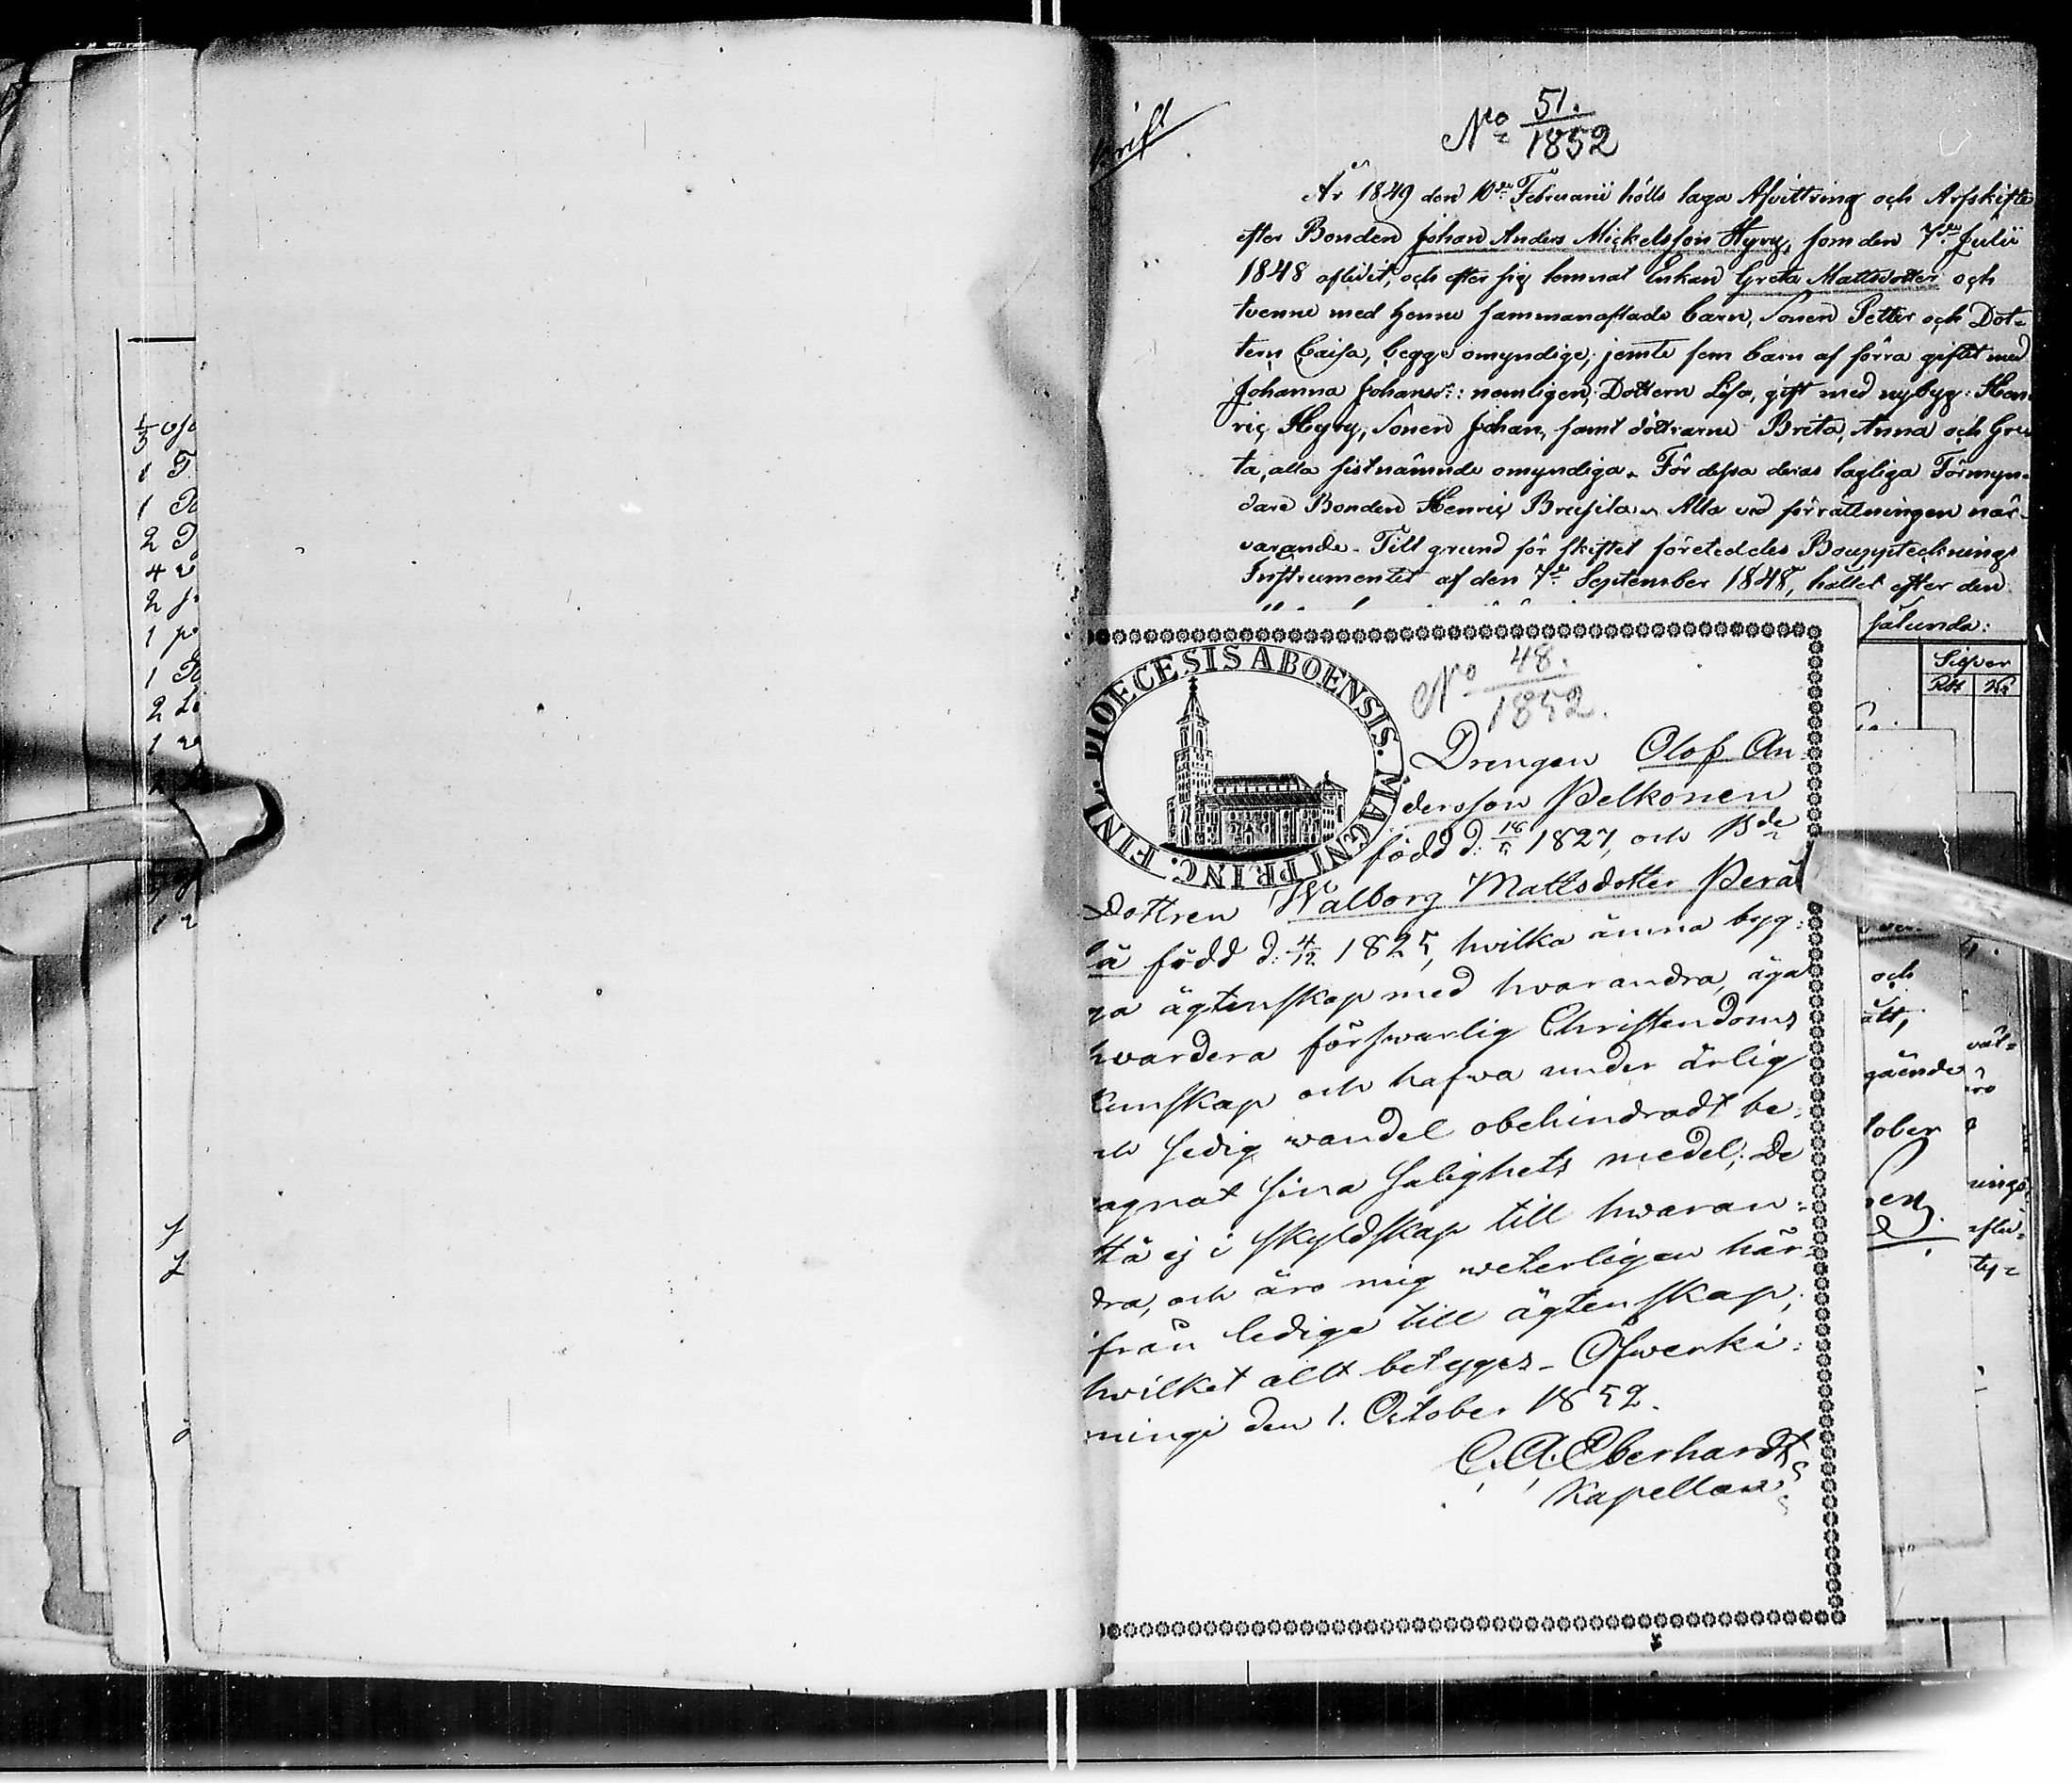 1/3
1 T
1
2 T
4
2
1
1
2
1
1
N:o 51./1852
År 1849 den 10de Februarii hölls laga Afvittring och Arfskifte
efter Bonden Johan Anders Mickelsson Hyry, som den 7de Julii
1848 aflidit, och efter sig lemnat Enkan Greta Mattsdotter och
tvenne med henne sammanaflade barn, Sonen Petter och Dot-
tern Caisa, begge omyndige, jemte fem barn af förra giftet med
Johanna Johansdr: nemligen, Dottern Lisa, gift med nybyg: Hen
ric Hyry, Sonen Johan, samt döttrarne Brita, Anna och Gre
ta, alla sistnämnde omyndiga. För dessa deras lagliga Förmyn-
dare Bonden Henric Alla vid förrättningen när-
varande. Till grund för skiftet företeddes Bouppteckninge
Instrumentet af den 7de September 1848, hållet efter den
sålunda:
Silfver
Rbl Ko
DIOECESIS ABOENSIS. MAGNI PRINC. FINL.
No 48./1852.
Drengen Olof An-
dersson Pelkonen
född d: 18/5 1827, och Bde
Dottren Walborg Mattsdotter Perä
lä född d: 4/12 1825, hvilka ämna byg:
ga ägtenskap med hvarandra, äga
hvardera försvarlig Christendoms
kunskap och hafva under ärlig
och sedig vandel obehindradt be-
agnat sina salighets medel; De
stå ej i skyldskap till hvaran:
dra, och äro mig veterligen här-
ifrån ledige till ägtenskap;
hvilket allt betyges - Öfwerki:
mingi den 1. October 1852.
C. A. Eberhardt
Kapellan
och
ätt,
gående
tober